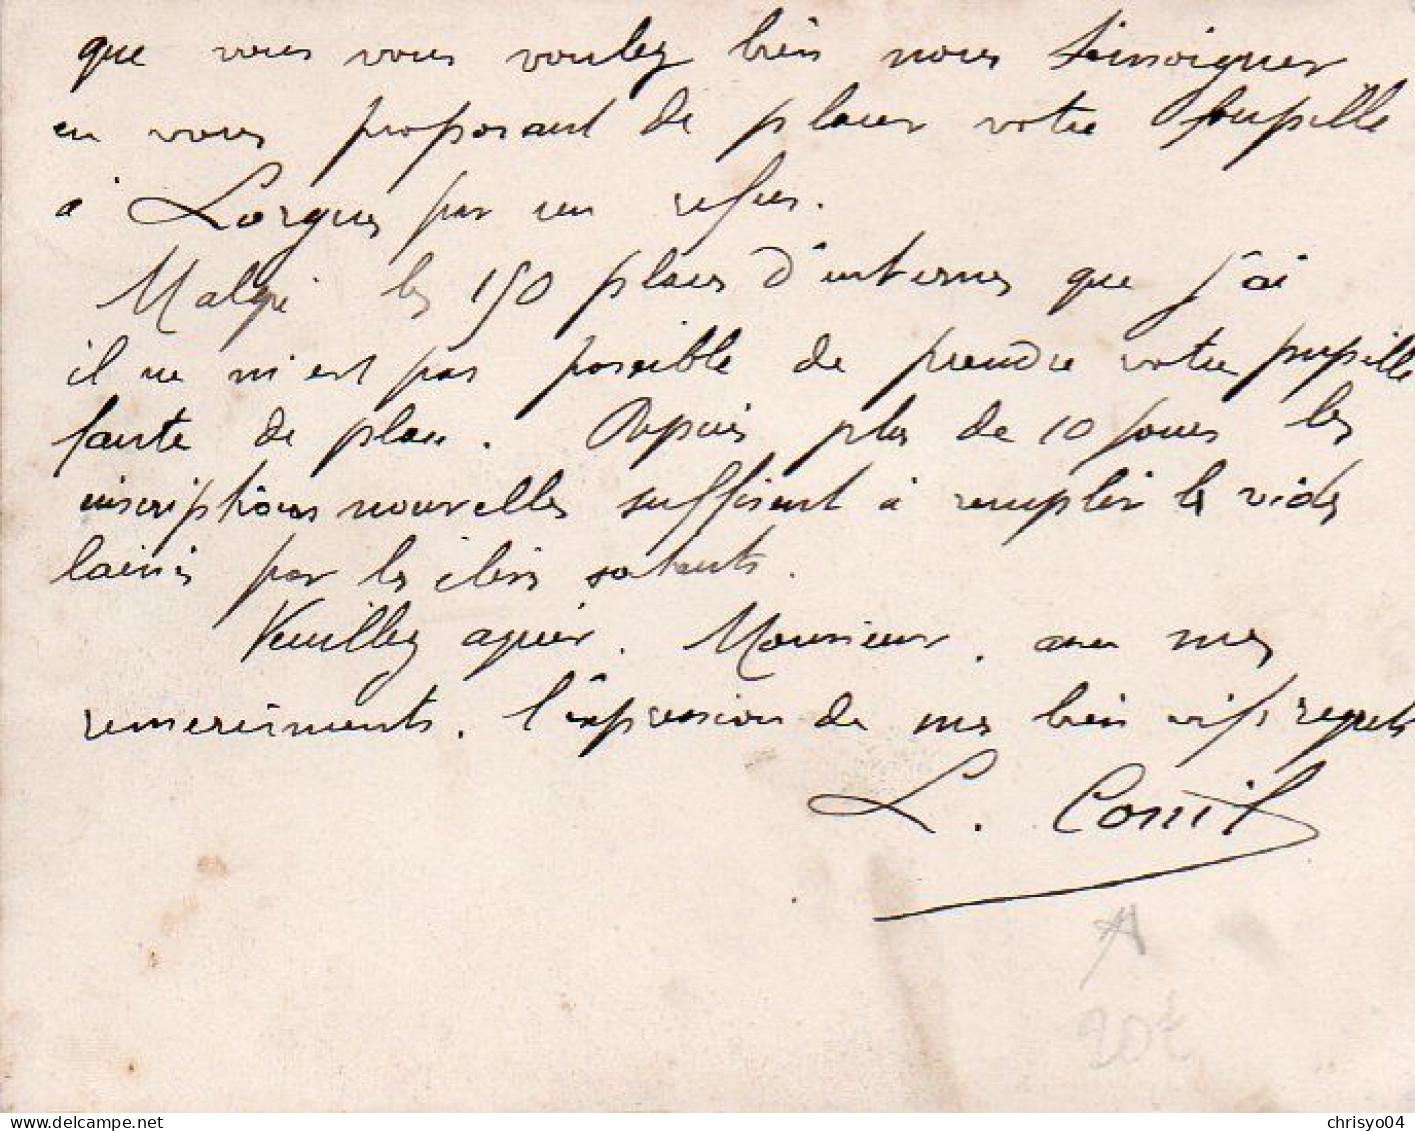 que vous vous voulez bien nous témoigner
en vous proposant de placer votre pupille
à Lorgues par un refus.
Malgré les 150 places d'internes que j'ai
il ne m'est pas possible de prendre votre pupille
faute de place. Depuis plus de 10 jours les
inscriptions nouvelles suffisent à remplir les vides
laissés par les élèves sortants.
Veuillez agréer, Monsieur, avec mes
remerciements, l'expression de mes bien vifs regrets
L. Conil
20€
delcampe.net
chrisyo04